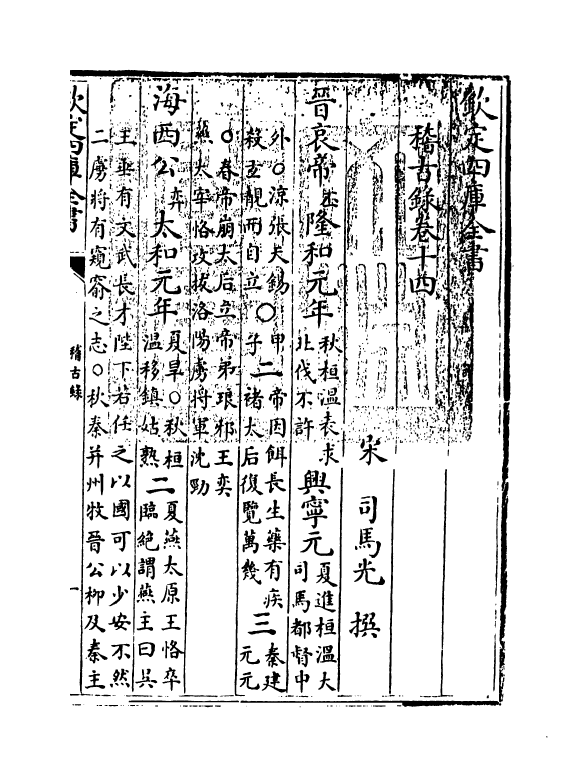 欽定四庫全書
稽古錄卷十四
宋 司馬光 撰
晉哀帝丕隆和元年秋桓溫表求北伐不許興寧元夏進桓溫大司馬都督中
外○涼張天錫殺玄靚而自立○甲子二帝因餌長生藥有疾褚太后復覽萬幾三秦建元元
○春帝崩太后立帝弟琅邪王奕
燕太宰恪攻拔洛陽虜將軍沈勁
海西公奕太和元年夏旱○秋桓溫移鎮姑熟二夏燕太原王恪卒臨絶謂燕主曰吳
王垂有文武長才陛下若任之以國可以少安不然
二虜將有窺窬之志○秋秦并州牧晉公柳及秦主
欽定四庫全書
稽古錄
一